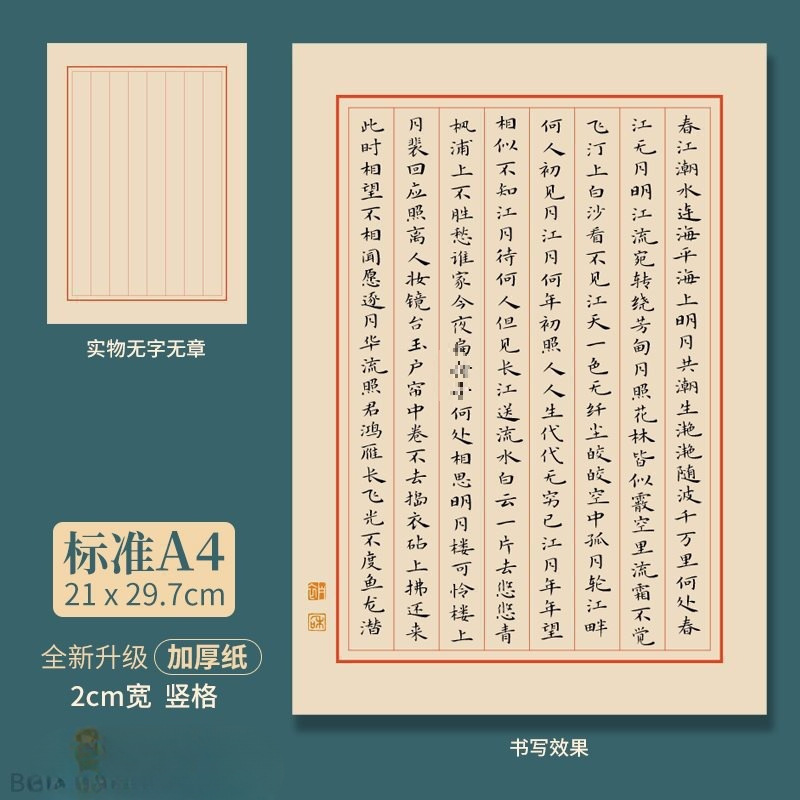 实物无字无章
春江潮水连海平海上明月共潮生滟滟随波千万里何处春
江无月明江流宛转绕芳甸月照花林皆似霰空里流霜不觉
飞汀上白沙看不见江天一色无纤尘皎皎空中孤月轮江畔
何人初见月江月何年初照人人生代代无穷已江月年年望
相似不知江月待何人但见长江送流水白云一片去悠悠青
枫浦上不胜愁谁家今夜扁何处相思明月楼可怜楼上
月裴回应照离人妆镜台玉户帘中卷不去捣衣砧上拂还来
此时相望不相闻愿逐月华流照君鸿雁长飞光不度鱼龙潜
标准A4
21 x 29.7cm
全新升级 加厚纸
2cm宽 竖格
书写效果